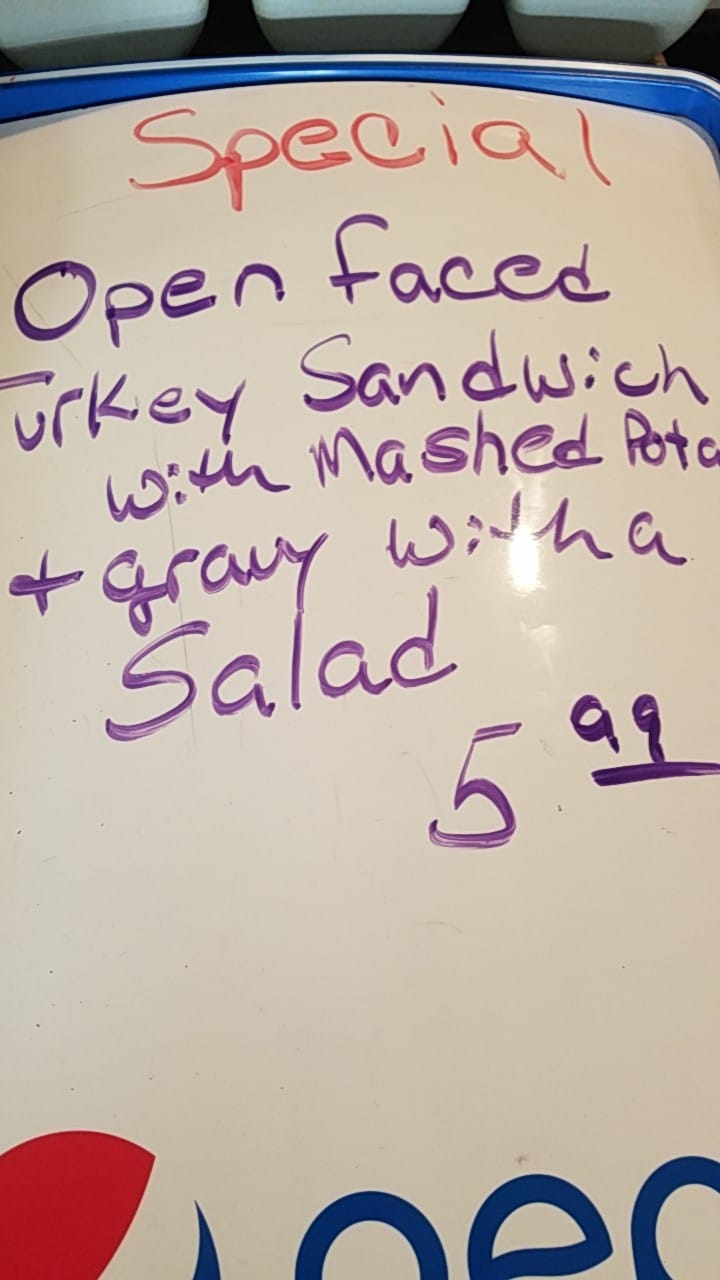 Special
Open faced
Turkey Sandwich
with Mashed Pota
+ gravy with a
Salad
5 99
pep